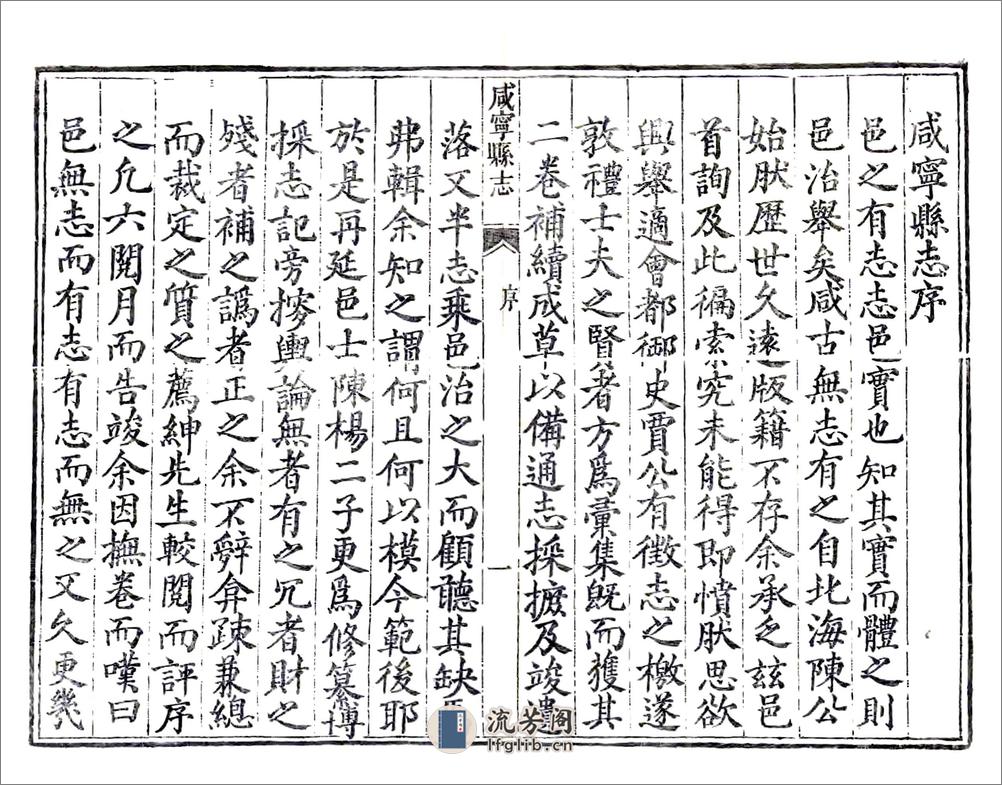 咸寧縣志序
邑之有志志邑實也知其實而體之則
邑治舉矣咸古無志有之自北海陳公
始肰歷世久遠版籍不存余承乏玆邑
首詢及此徧索究未能得即憤肰思欲
興舉適會都御史賈公有徵志之檄遂
敦禮士夫之賢者方爲彙集旣而獲其
二卷補續成草以備通志採摭及竣遺
咸寧縣志
序
一
落又半志乘邑治之大而顧聽其缺
弗輯余知之謂何且何以模今範後耶
於是再延邑士陳楊二子更爲修纂博
採志記旁搜輿論無者有之冗者財之
殘者補之譌者正之余不辭弇疎兼總
而裁定之質之薦紳先生較閱而評序
之凢六閱月而告竣余因撫卷而嘆曰
邑無志而有志有志而無之又久更幾
流芳阁
lfglib.cn